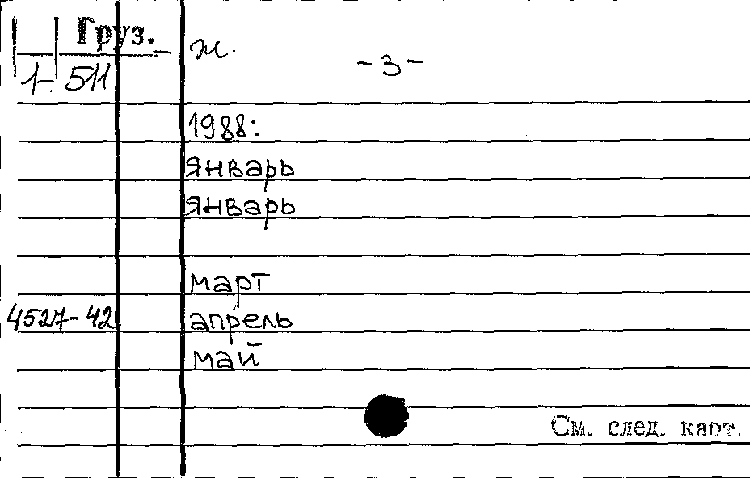 Груз. ж. -3-
1-511
1988:
январь
январь
март
4527-42 апрель
май
См. след. карт.